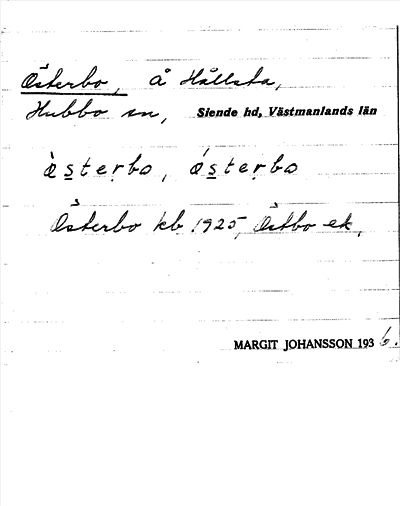 Österbo, å Hållsta,
Hubbo sn, Siende hd, Västmanlands län
œ̀sterbo, œ́sterbo
Österbo kb 1925, Östbo ek,
MARGIT JOHANSSON 1936.